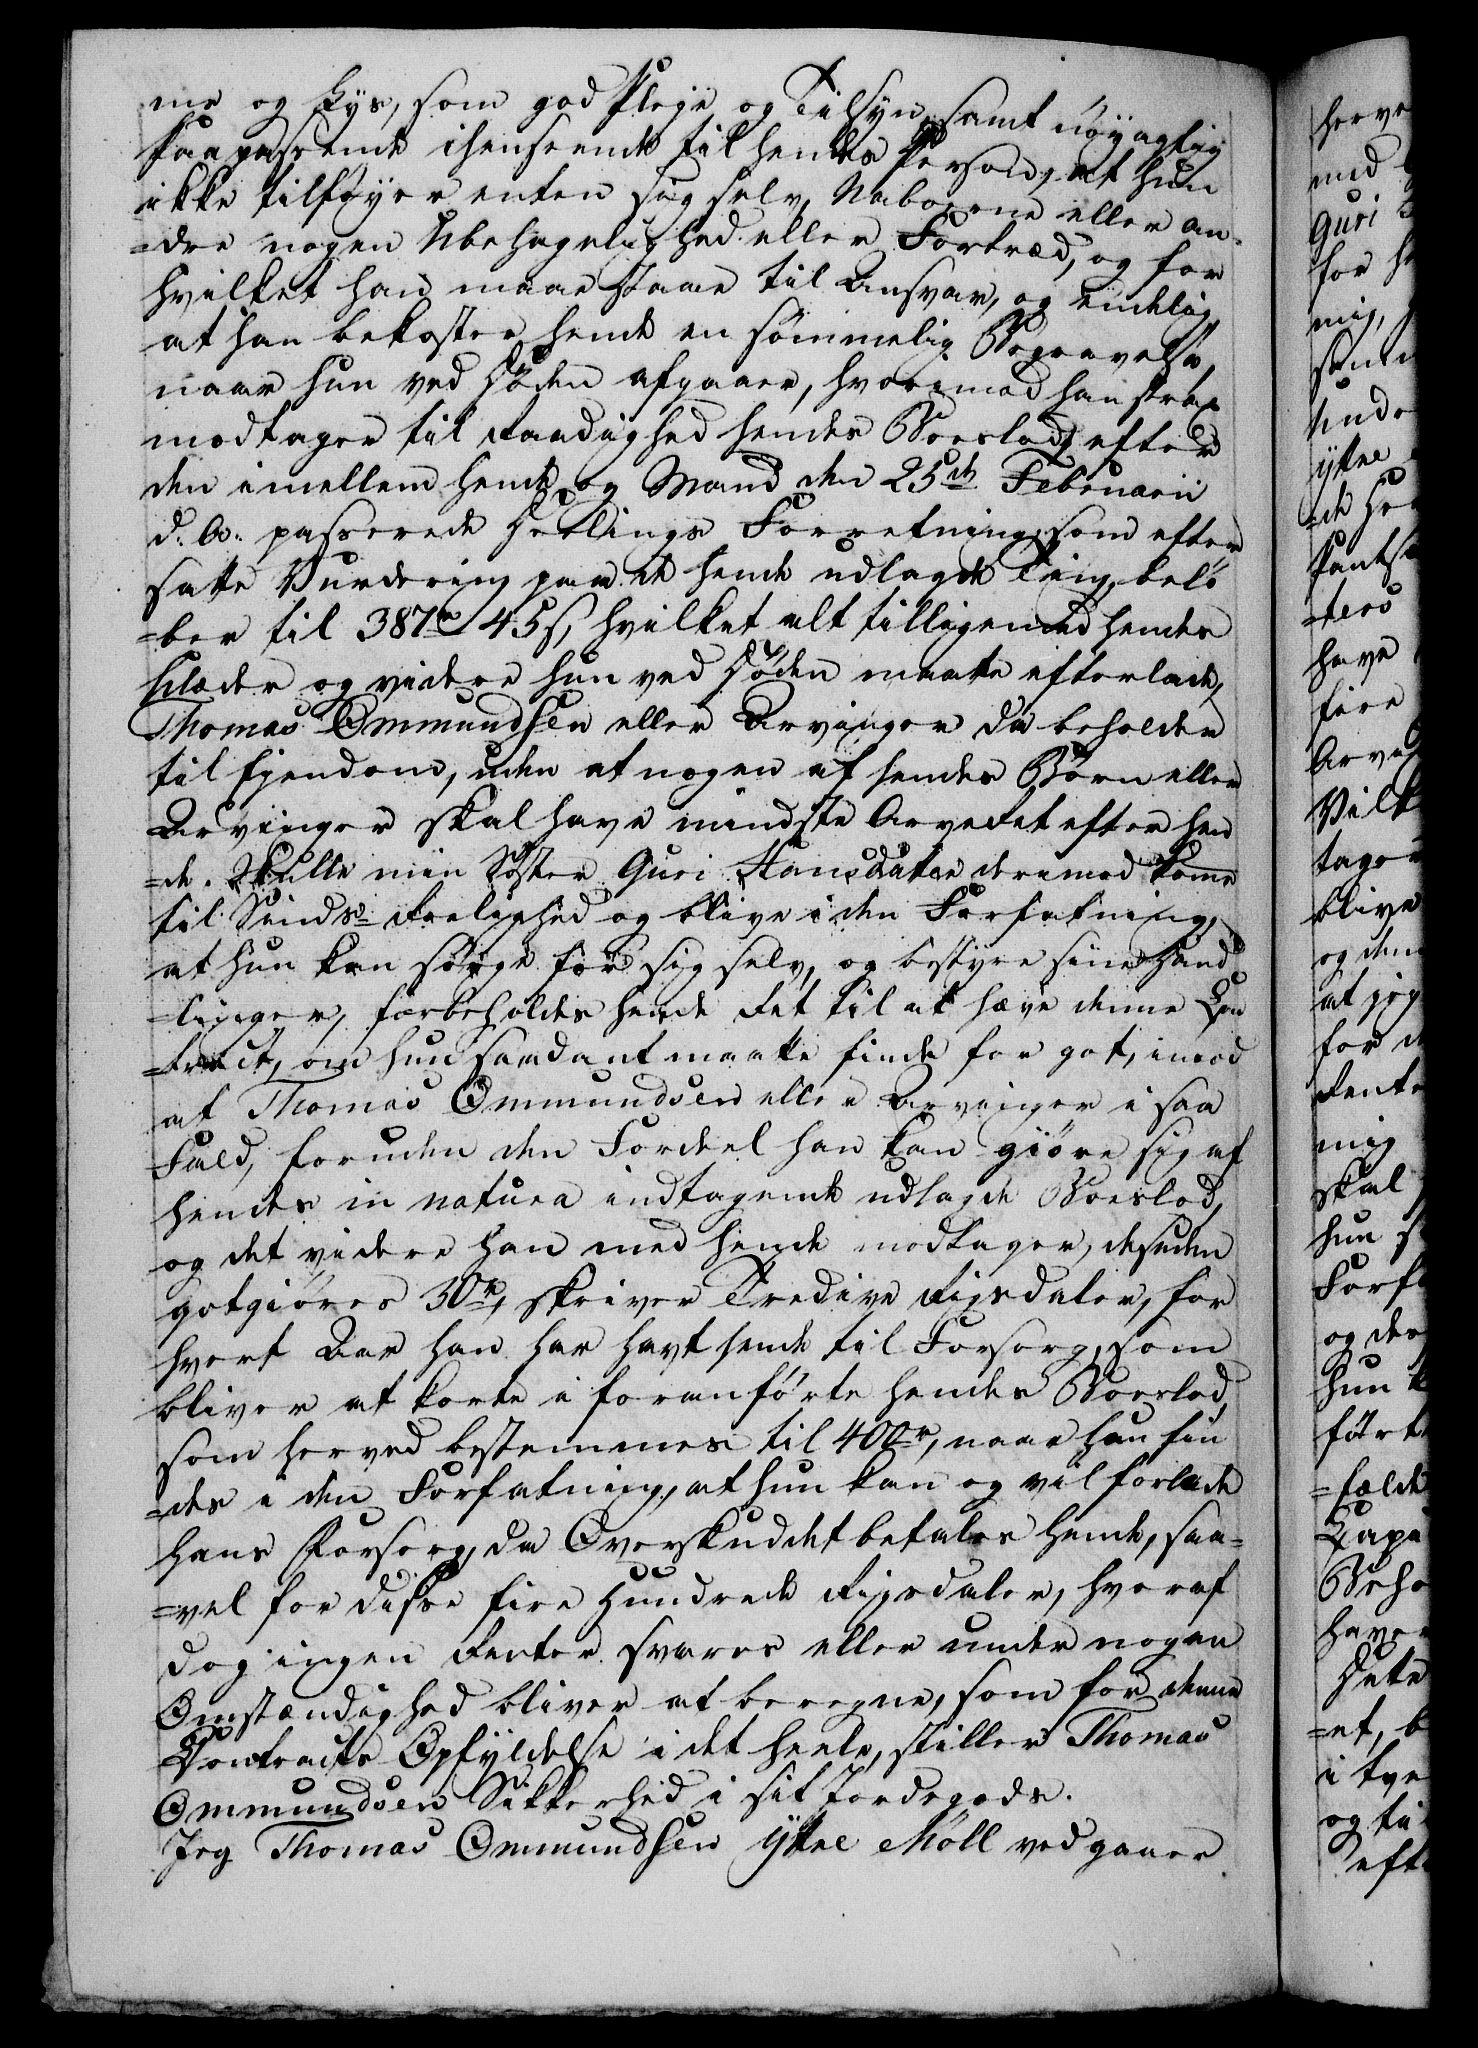 me og Lys, som god Pleje og Tilsyn, samt nøyagtig
Paapassende i henseende til hendes Person, at hun
ikke tilføyer enten sig selv, Naboerne eller an-
=dre nogen Ubehagelighed eller Fortræd, og for
hvilket han maae staae til Ansvar, og endelig
at han bekoster hende en sømmelig Begravelse,
naar hun ved Døden afgaaer, hvorimod han strax
modtager til Raadighed hendes Boeslod, efter
den imellem hende og Mand den 25de Februarii
d: A: passerede Deelings Forretning, som efter
satte Vurdering paa de hende udlagde Ting, belø
=ber til 387rd 45s, hvilket alt tilligemed hendes
Klæder og videre hun ved Døden maatte efterlade,
Thomas Ommundsen eller Arvinger da beholder
til Ejendom, uden at nogen af hendes Børn eller
Arvinger skal have mindste Arveret efter hen
=de. Skulle min Søster Guri Hansdatter derimod komme
til Sinds- Roelighed og blive i den Forfatning,
at hun kan sørge for sig selv, og bestyre sine Hand
=linger, forbeholdes hende Ret til at hæve denne Con
=tract, om hun saadant maatte finde for got, imod
at Thomas Ommundsen eller Arvinger i saa
Fald, foruden den Fordeel han kan giøre sig af
hendes in natura indtagende udlagde Boeslod,
og det videre han med hende modtager, desuden
gotgiøres 30rd, skriver Tredive Rigsdaler, for
hvert Aar han har havt hende til Forsorg, som
bliver at korte i foranførte hendes Boeslod,
som herved bestemmes til 400rd, naar hun fin
=des i den Forfatning, at hun kan og vil forlade
hans Forsorg, da Overskuddet betales hende, saa-
=vel for disse fire Hundrede Rigsdaler, hvoraf
dog ingen Renter svares eller under nogen
Omstændighed bliver at beregne, som for denne
Contracts Opfyldelse i det heele, stiller Thomas
Ommundsen Sikkerhed i sit Jordegods.
Jeg Thomas Ommundsen Ÿttre Møll vedgaaer
herve
med
Guri
for
mig,
Unde
ÿttre
=de
=ters
have
fire
Arv
Vilk
tager
blive
og den
at jeg
for
Rente
mig
skal
hun
Forf
og der
hun
ført
=fælde
Capi
Beho
haver
=et, b
i tve
og ti
eft